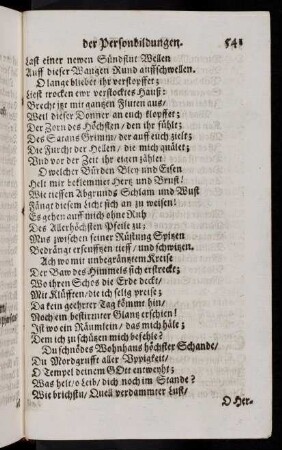 der Personbildungen. 541
Last einer newen Sündflut Wellen
Auff dieser Wangen Rund auffschwellen.
O lange bliebet ihr verstopffet;
Liest trocken ewr verstocktes Hauß:
Brecht itzt mit gantzen Fluten aus/
Weil dieser Donner an euch klopffet;
Der Zorn des Höchsten/ den ihr fühlt;
Des Satans Grimm/ der auff euch zielt;
Die Furcht der Hellen/ die mich quälet;
Vnd vor der Zeit ihr eigen zählet
O welcher Bürden Bley und Eisen
Helt mir beklemmet Hertz und Brust!
Wie tieffen Abgrunds Schlam und Wust
Fänget diesem Licht sich an zu weisen!
Es gehen auff mich ohne Ruh
Des Allerhöchsten Pfeile zu;
Mus zwischen seiner Rüstung Spitzen
Bedrängt erseufftzen tieff/ und schwitzen.
Ach wo mit unbegräntzem Kreise
Der Baw des Himmels sich erstreckt;
Wo ihren Schos die Erde deckt/
Mit Klüfften/ die ich selig preise;
Da kein geehrter Tag kömmt hin/
Noch ein bestirnter Glantz erschien!
Ist wo ein Räumlein/ das mich häle;
Dem ich zu schützen mich befehle?
Du schnödes Wohnhaus höchster Schande/
Du Mordgrufft aller Vppigkeit/
O Tempel deinem GOtt entweyht;
Was helt/ o Leib/ dich noch im Stande?
Wie brichstu/ Quell verdammter Lust/
O Her-